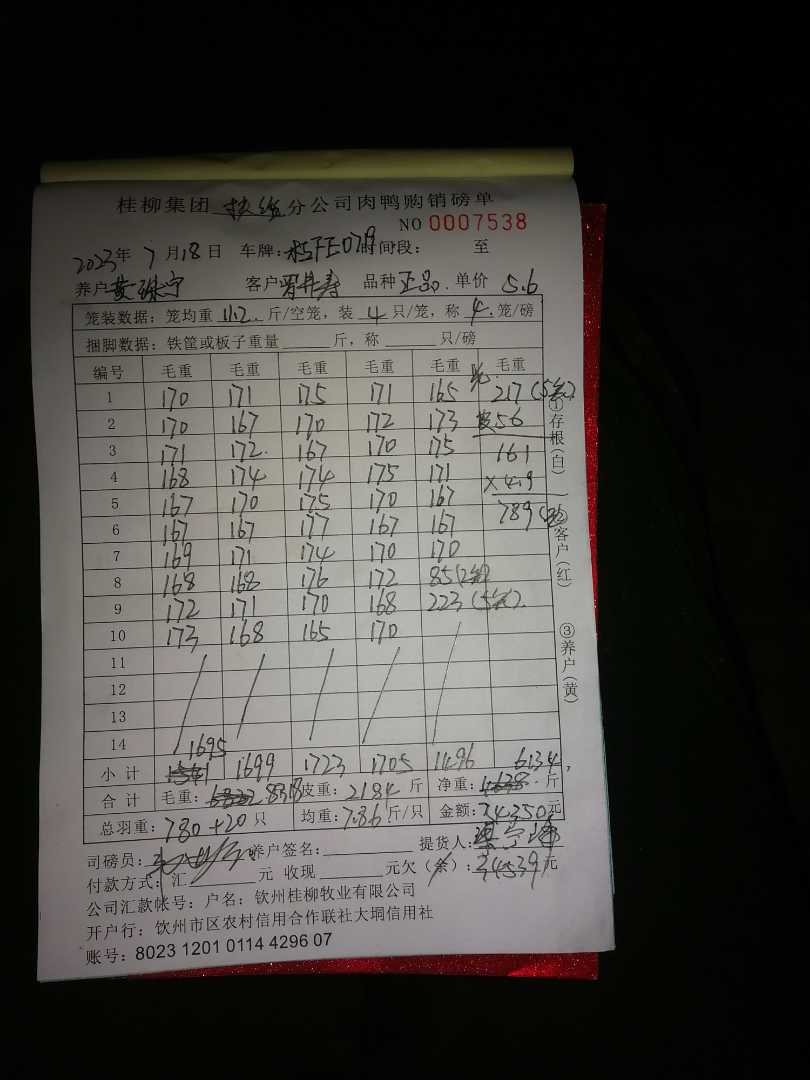 桂柳集团 扶绥 分公司肉鸭购销磅单
NO 0007538
2023年 7 月 18 日 车牌： 时间段： 至
养户 黄 宁 客户 品种 正品. 单价 5.6
笼装数据：笼均重 11.2. 斤/空笼，装 4 只/笼，称 4. 笼/磅
捆脚数据：铁筐或板子重量 斤，称 只/磅
编号 毛重 毛重 毛重 毛重 毛重 毛重
1 170 171 175 171 165 217 (5笼)
2 170 167 170 172 173 皮56
3 171 172. 167 170 175 161
4 168 174 174 175 171 ×4.9
5 167 170 175 170 167 789
6 167 167 177 167 167
7 169 171 174 170 170
8 168 168 176 172 85(2笼)
9 172 171 170 168 223 (5笼).
10 173 168 165 170
11
12
13
14
小计 1695 1699 1723 1705 1496 6134
合计 毛重： 8318 皮重：2184 斤 净重： 斤
总羽重：780+20 只 均重：7.86 斤/只 金额：34350 元
司磅员： 养户签名： 提货人：
付款方式：汇 元 收现 元欠（余）：34539 元
公司汇款帐号：户名：钦州桂柳牧业有限公司
开户行：钦州市区农村信用合作联社大垌信用社
账号：8023 1201 0114 4296 07
①存根（白） ②客户（红） ③养户（黄）